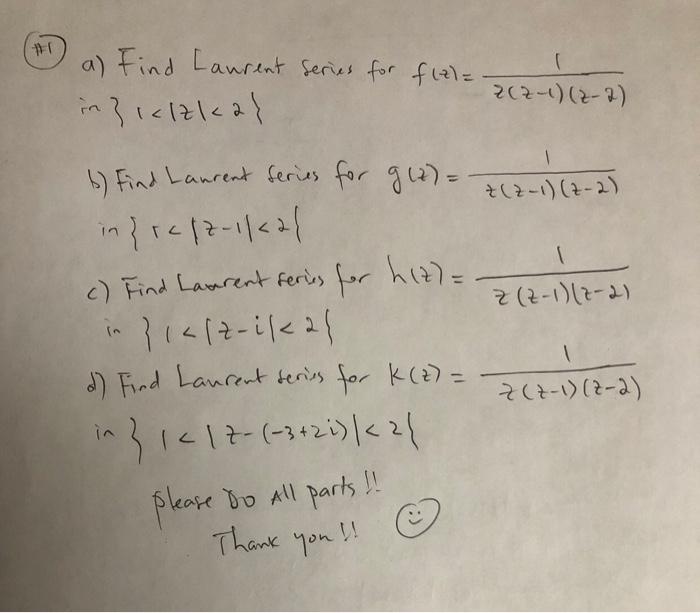 #1
a) Find Laurent Series for f(z) = 1 / z(z-1)(z-2)
in } 1<|z|<2 {
b) Find Laurent Series for g(z) = 1 / z(z-1)(z-2)
in { 1<|z-1|<2 {
c) Find Laurent Series for h(z) = 1 / z(z-1)(z-2)
in } 1<|z-i|<2 {
d) Find Laurent Series for K(z) = 1 / z(z-1)(z-2)
in } 1<|z-(-3+2i)|<2 {
please Do All parts !!
Thank you !!